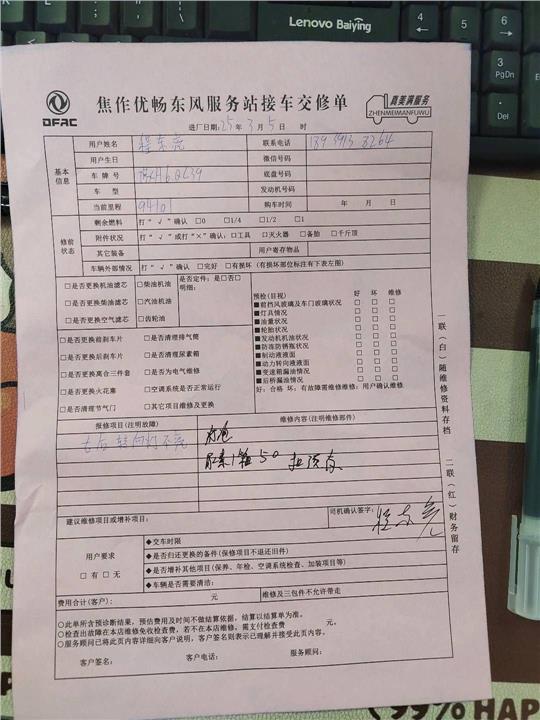 Lenovo Baiying
DFAC
焦作优畅东风服务站接车交修单
真美满服务
ZHENMEIMANFUWU
进厂日期:25年3月5日 时
基本信息
用户姓名 程东亮 联系电话
用户生日 微信号码
车牌号 底盘号码
车型 发动机号码
当前里程 94101 购车时间 年 月 日
修前状态
剩余燃料 打“√”确认 □0 □1/4 □1/2 □1
附件状况 打“√”或打“×”确认:□工具 □灭火器 □备胎 □千斤顶
其它装备 用户寄存物品
车辆外部情况 打“√”确认 □完好 □有损坏(有损坏部位标注有下表左图)
□是否更换机油滤芯 □柴油机油 是否定件:是□否□
明细:
□是否更换柴油滤芯 □汽油机油
□是否更换空气滤芯 □齿轮油
□是否更换前刹车片 □是否清理排气筒
□是否更换后刹车片 □是否清理尿素箱
□是否更换离合三件套 □是否为电气维修
□是否更换火花塞 □空调系统是否正常运行
□是否清理节气门 □其它项目维修及更换
预检(目视) 好 坏 维修
■前挡风玻璃及车门玻璃状况 □ □ □
■灯具情况 □ □ □
■油量状况 □ □ □
■轮胎状况 □ □ □
■发动机机油状况 □ □ □
■防冻防锈瓶状况 □ □ □
■制动液液面 □ □ □
■动力转向液液面 □ □ □
■变速箱漏油情况 □ □ □
■后桥漏油情况 □ □ □
好:合格 坏:有故障需维修维修:用户确认维修
报修项目(注明故障) 维修内容(注明维修部件)
七后 转向灯不亮 灯泡
尿素1箱 50
建议维修项目或增补项目:
司机确认签字: 程东亮
用户要求
□有 □无
◆交车时限
◆是否归还更换的备件(保修项目不退还旧件)
◆是否增补其他项目(保养、年检、空调系统检查、加装项目等)
◆车辆是否需要清洁:
费用合计(客户): 元 维修及三包件不允许带走
○此单所含预诊断结果,预估费用及时间不做结算依据,结算以结算单为准。
○检查出故障在本店维修免收检查费,若不在本店维修,需支付检查费 元。
○服务顾问已将此页内容详细向客户说明,客户签名则表示已理解并接受此页内容。
客户签名: 客户电话: 服务顾问:
一联(白)随维修资料存档
二联(红)财务留存
4
5
6
3
PgDn
Del
(99% HAP